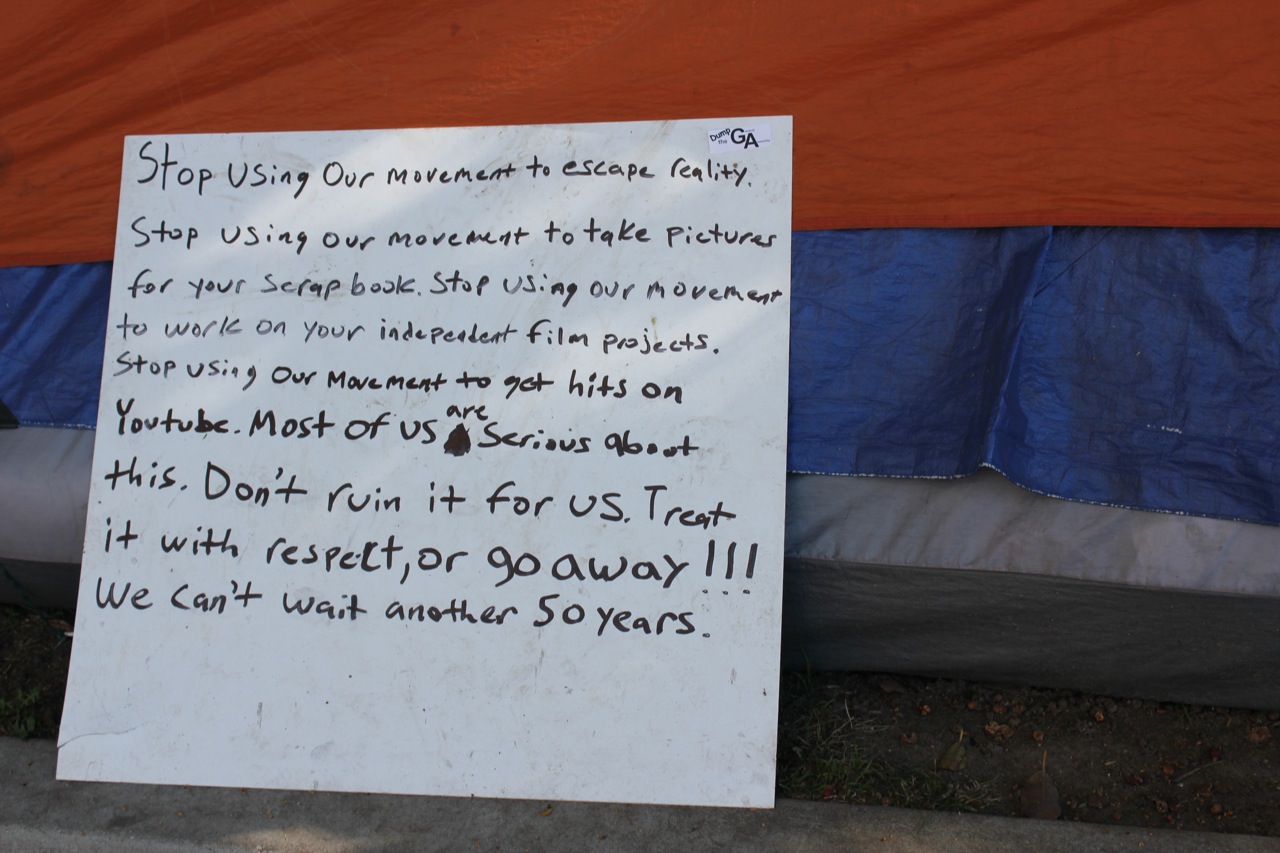 Dump the GA
Stop Using Our movement to escape reality.
Stop using our movement to take pictures
for your scrap book. Stop using our movement
to work on your independent film projects.
Stop using our movement to get hits on
Youtube. Most of us are Serious about
this. Don't ruin it for us. Treat
it with respect, or go away!!!
We can't wait another 50 years.